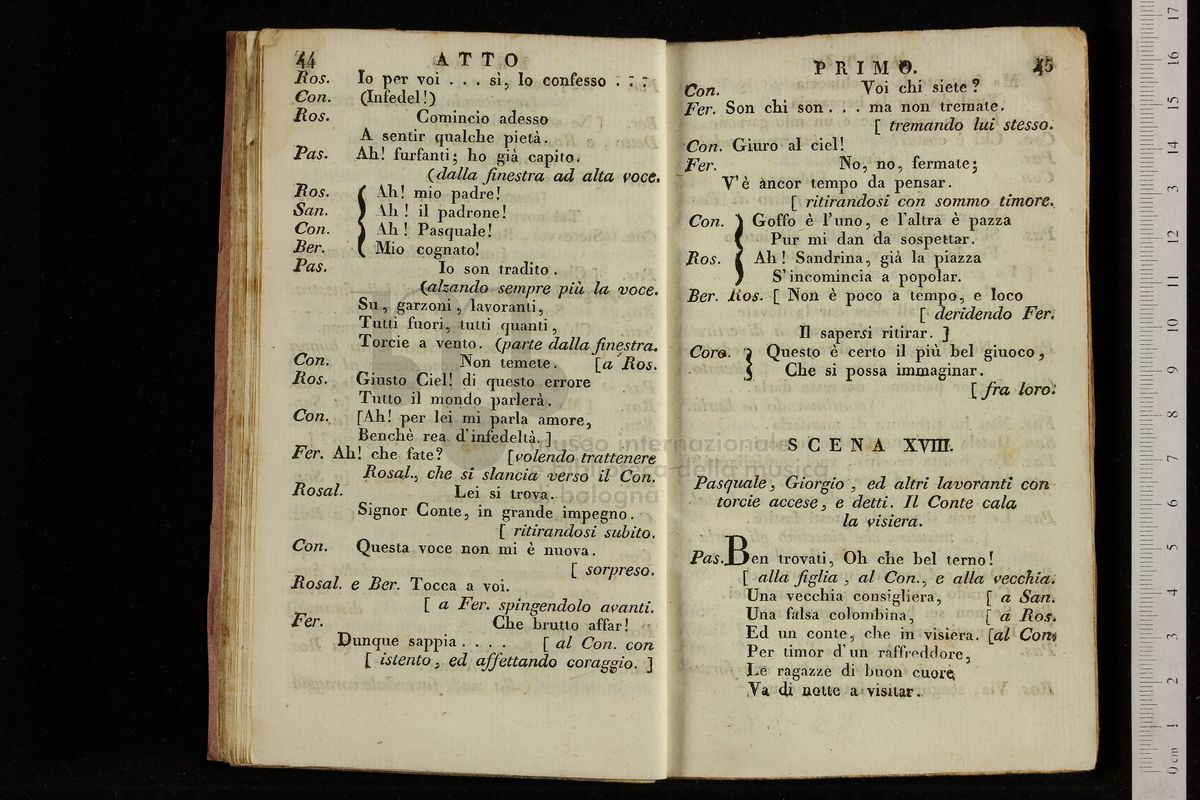 44 ATTO
Ros. Io per voi . . . sì, lo confesso . . .
Con. (Infedel!)
Ros. Comincio adesso
A sentir qualche pietà.
Pas. Ah! furfanti; ho già capito.
(dalla finestra ad alta voce.
Ros. Ah! mio padre!
San. Ah! il padrone!
Con. Ah! Pasquale!
Ber. Mio cognato!
Pas. Io son tradito.
(alzando sempre più la voce.
Su, garzoni, lavoranti,
Tutti fuori, tutti quanti,
Torcie a vento. (parte dalla finestra.
Con. Non temete. [a Ros.
Ros. Giusto Ciel! di questo errore
Tutto il mondo parlerà.
Con. [Ah! per lei mi parla amore,
Benchè rea d'infedeltà.]
Fer. Ah! che fate? [volendo trattenere
Rosal., che si slancia verso il Con.
Rosal. Lei si trova.
Signor Conte, in grande impegno.
[ ritirandosi subito.
Con. Questa voce non mi è nuova.
[ sorpreso.
Rosal. e Ber. Tocca a voi.
[ a Fer. spingendolo avanti.
Fer. Che brutto affar!
Dunque sappia . . . . [ al Con. con
[ istento, ed affettando coraggio. ]
PRIMO. 45
Con. Voi chi siete?
Fer. Son chi son . . . ma non tremate.
[ tremando lui stesso.
Con. Giuro al ciel!
Fer. No, no, fermate;
V'è ancor tempo da pensar.
[ ritirandosi con sommo timore.
Con. Goffo è l'uno, e l'altra è pazza
Pur mi dan da sospettar.
Ros. Ah! Sandrina, già la piazza
S'incomincia a popolar.
Ber. Ros. [ Non è poco a tempo, e loco
[ deridendo Fer.
Il sapersi ritirar. ]
Coro. Questo è certo il più bel giuoco,
Che si possa immaginar.
[ fra loro.
SCENA XVIII.
Pasquale, Giorgio, ed altri lavoranti con
torcie accese, e detti. Il Conte cala
la visiera.
Pas. Ben trovati, Oh che bel terno!
[ alla figlia, al Con., e alla vecchia.
Una vecchia consigliera, [ a San.
Una falsa colombina, [ a Ros.
Ed un conte, che in visiera. [al Con.
Per timor d'un raffreddore,
Le ragazze di buon cuore
Va di notte a visitar.
museo internazionale
e biblioteca della musica
bologna
0 cm 1 2 3 4 5 6 7 8 9 10 11 12 13 14 15 16 17